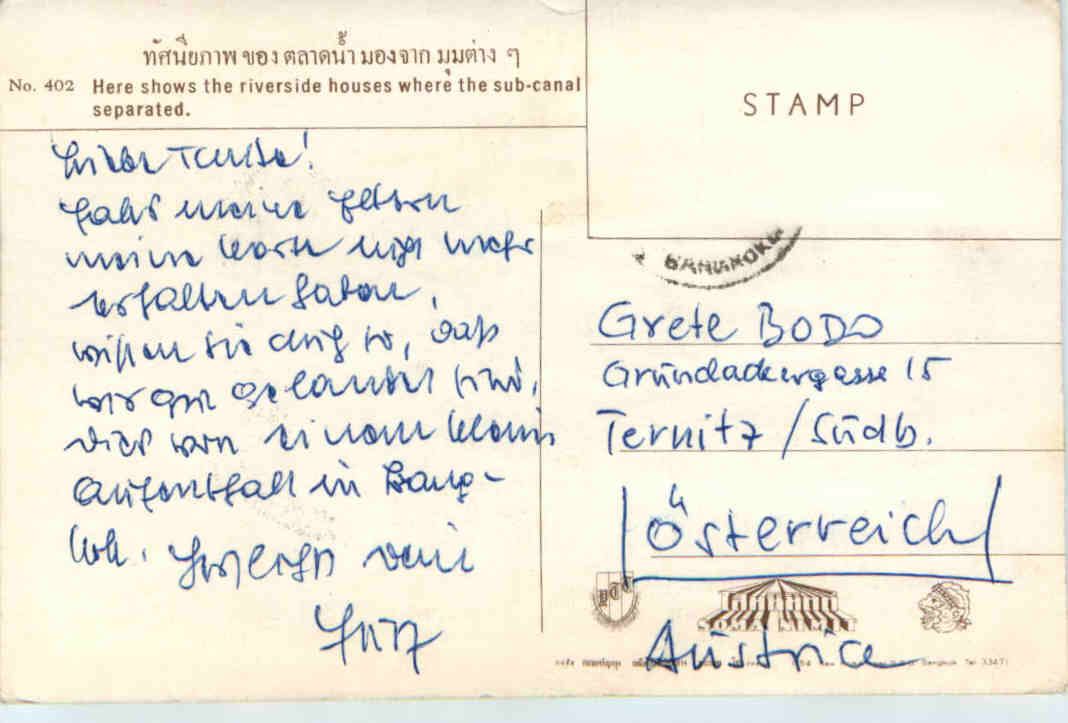 ทัศนียภาพ ของ ตลาดน้ำ มองจาก มุมต่าง ๆ
No. 402 Here shows the riverside houses where the sub-canal
separated.
STAMP
Liebe Tante!
Falls meine Eltern
meine Karte nicht mehr
erhalten haben,
wissen Sie auch so, daß
wir gut gelandet sind,
dies von einem kleinen
Aufenthalt in Bang-
kok. Herzlichst Dein
BANGKOK
Grete BODO
Gründackergasse 15
Ternitz / Südb.
Österreich
SOMA NIMIT
Austrice